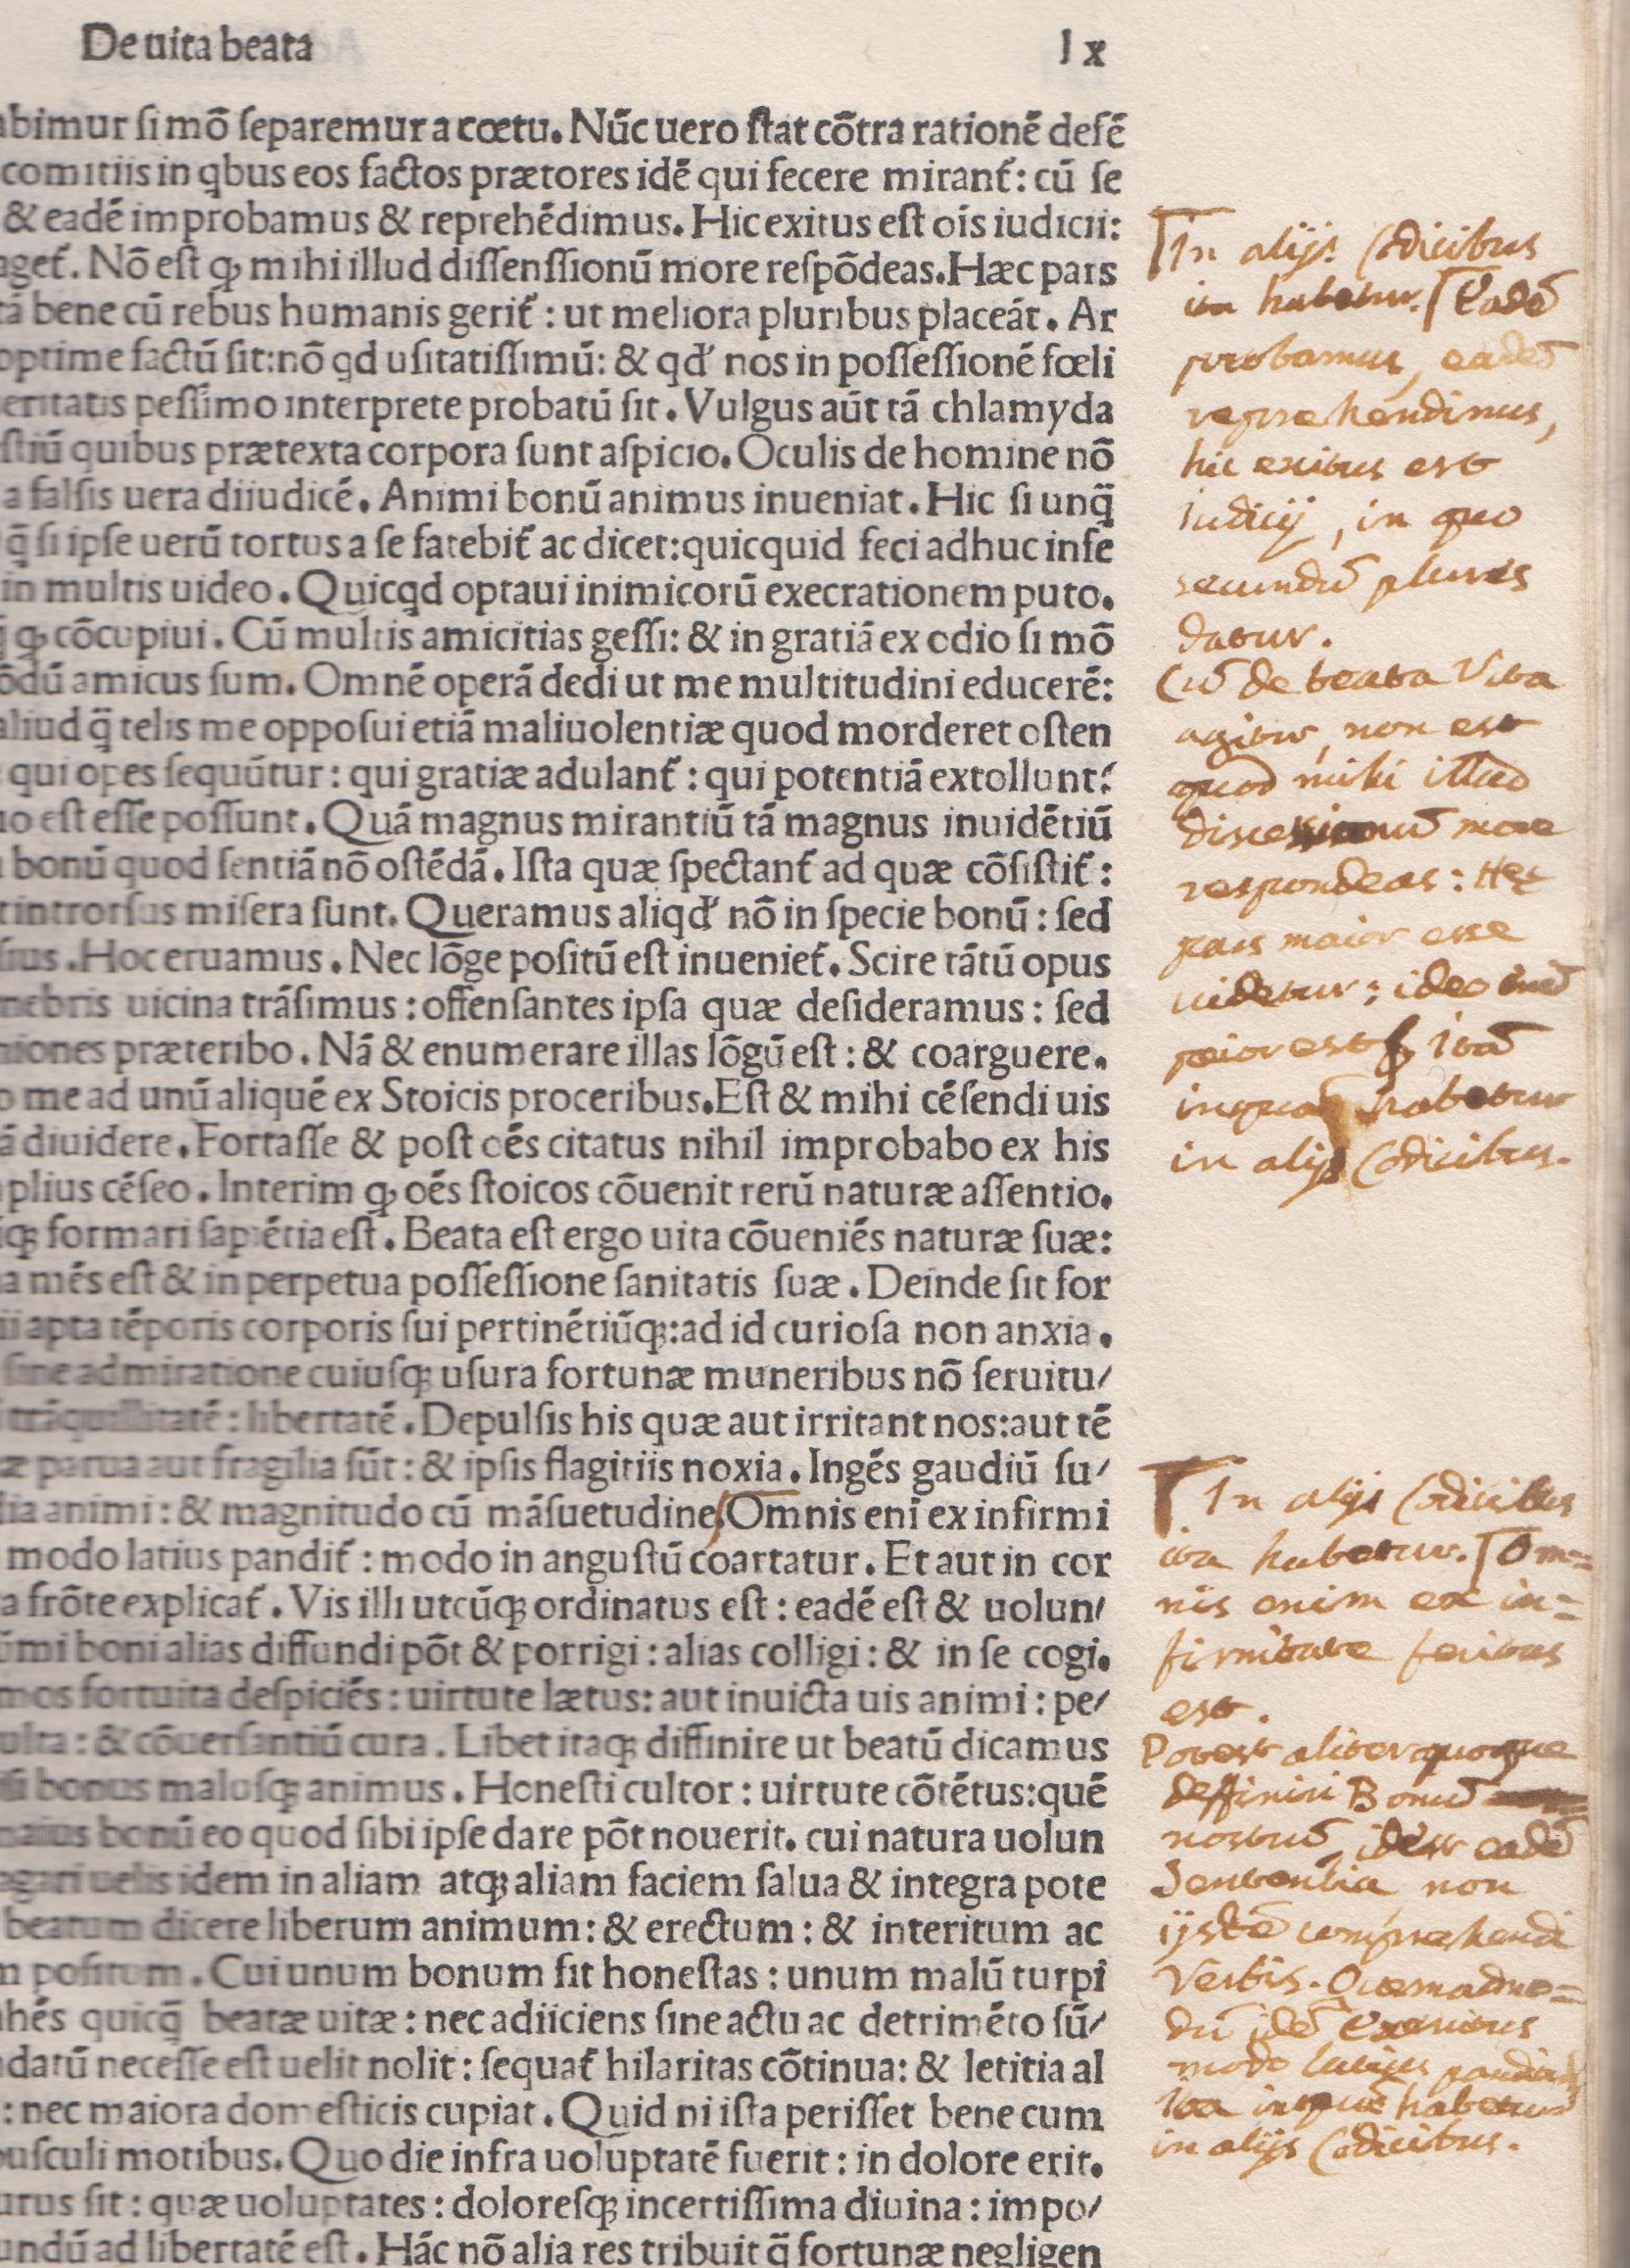 De uita beata
Ix
abimur ſi mō ſeparemur a cœtu. Nūc uero ſtat cōtra rationē defē
comitiis in qbus eos factos prætores idē qui fecere mirant̄: cū ſe
& eadē improbamus & reprehēdimus. Hic exitus eſt oīs iudicii:
aget̄. Nō eſt ꝙ mihi illud diſſenſſionū more reſpōdeas. Hæc pars
tā bene cū rebus humanis gerit̄: ut meliora pluribus placeāt. Ar
optime factū ſit: nō qd uſitatiſſimū: & qd' nos in poſſeſſionē fœli
eritatis peſſimo interprete probatū ſit. Vulgus aūt tā chlamyda
ſtiū quibus prætexta corpora ſunt aſpicio. Oculis de homine nō
a falſis uera diiudicē. Animi bonū animus inueniat. Hic ſi unq̄
q̄ ſi ipſe uerū tortus a ſe fatebit̄ ac dicet: quicquid feci adhuc infe
in multis uideo. Quicqd optaui inimicorū execrationem puto.
ꝙ cōcupiui. Cū multis amicitias geſſi: & in gratiā ex odio ſi mō
ōdū amicus ſum. Omnē operā dedi ut me multitudini educerē:
aliud q̄ telis me oppoſui etiā maliuolentiæ quod morderet oſten
qui opes ſequūtur: qui gratiæ adulant̄: qui potentiā extollunt:
uo eſt eſſe poſſunt. Quā magnus mirantiū tā magnus inuidētiū
bonū quod ſentiā nō oſtēdā. Iſta quæ ſpectant̄ ad quæ cōſiſtit̄:
introrſus miſera ſunt. Queramus aliqd' nō in ſpecie bonū: ſed
ſius. Hoc eruamus. Nec lōge poſitū eſt inueniet̄. Scire tātū opus
nebris uicina trāſimus: offenſantes ipſa quæ deſideramus: ſed
niones præteribo. Nā & enumerare illas lōgū eſt: & coarguere.
o me ad unū aliquē ex Stoicis proceribus. Eſt & mihi cēſendi uis
ā diuidere. Fortaſſe & poſt oēs citatus nihil improbabo ex his
plius cēſeo. Interim ꝙ oēs ſtoicos cōuenit rerū naturæ aſſentio.
qꝫ formari ſapiētia eſt. Beata eſt ergo uita cōueniēs naturæ ſuæ:
a mēs eſt & in perpetua poſſeſſione ſanitatis ſuæ. Deinde ſit for
ii apta tēporis corporis ſui pertinētiūqꝫ: ad id curioſa non anxia.
ſine admiratione cuiuſqꝫ uſura fortunæ muneribus nō ſeruitu/
trāquillitatē: libertatē. Depulſis his quæ aut irritant nos: aut tē
æ parua aut fragilia ſūt: & ipſis flagitiis noxia. Ingēs gaudiū ſu/
dia animi: & magnitudo cū māſuetudine. Omnis eni ex infirmi
modo latius pandit̄: modo in anguſtū coartatur. Et aut in cor
a frōte explicat̄. Vis illi utcūqꝫ ordinatus eſt: eadē eſt & uolun/
ūmi boni alias diffundi pōt & porrigi: alias colligi: & in ſe cogi.
mos fortuita deſpiciēs: uirtute lætus: aut inuicta uis animi: pe/
ulta: & cōuerſantiū cura. Libet itaqꝫ diffinire ut beatū dicamus
bonus maluſqꝫ animus. Honeſti cultor: uirtute cōtētus: quē
maius bonū eo quod ſibi ipſe dare pōt nouerit. cui natura uolun
agari uelis idem in aliam atqꝫ aliam faciem ſalua & integra pote
beatum dicere liberum animum: & erectum: & interitum ac
m poſitum. Cui unum bonum ſit honeſtas: unum malū turpi
ahēs quicq̄ beatæ uitæ: nec adiiciens ſine actu ac detrimēto ſū/
datū neceſſe eſt uelit nolit: ſequat̄ hilaritas cōtinua: & letitia al
: nec maiora domeſticis cupiat. Quid ni iſta periſſet bene cum
puſculi motibus. Quo die infra uoluptatē fuerit: in dolore erit.
urus ſit: quæ uoluptates: doloreſqꝫ incertiſſima diuina: impo/
undū ad libertatē eſt. Hāc nō alia res tribuit q̄ fortunæ negligen
In alijs Codicibus
ita habetur. Eadē
probamus, eadē
reprehendimus,
hic exitus est
iudicij, in quo
secundū plures
datur.
Cū de beata Vita
agitur, non est
quod mihi illud
discessionū more
respondeas: Hęc
pars maior esse
uidetur: ideo enī
peior est. Itā
inquā habetur
in alijs Codicibus.
In alijs Codicibus
ita habetur. Om=
nis enim ex in=
firmitate feritas
est.
Potest aliter quoque
deffiniri Bonū
nostrū, idest eadē
Sententia non
ijsdē comprehendi
Verbis. Quemadmo=
dū idē Exercitus
modo latius panditur
Ita inquā habetur
in alijs Codicibus.